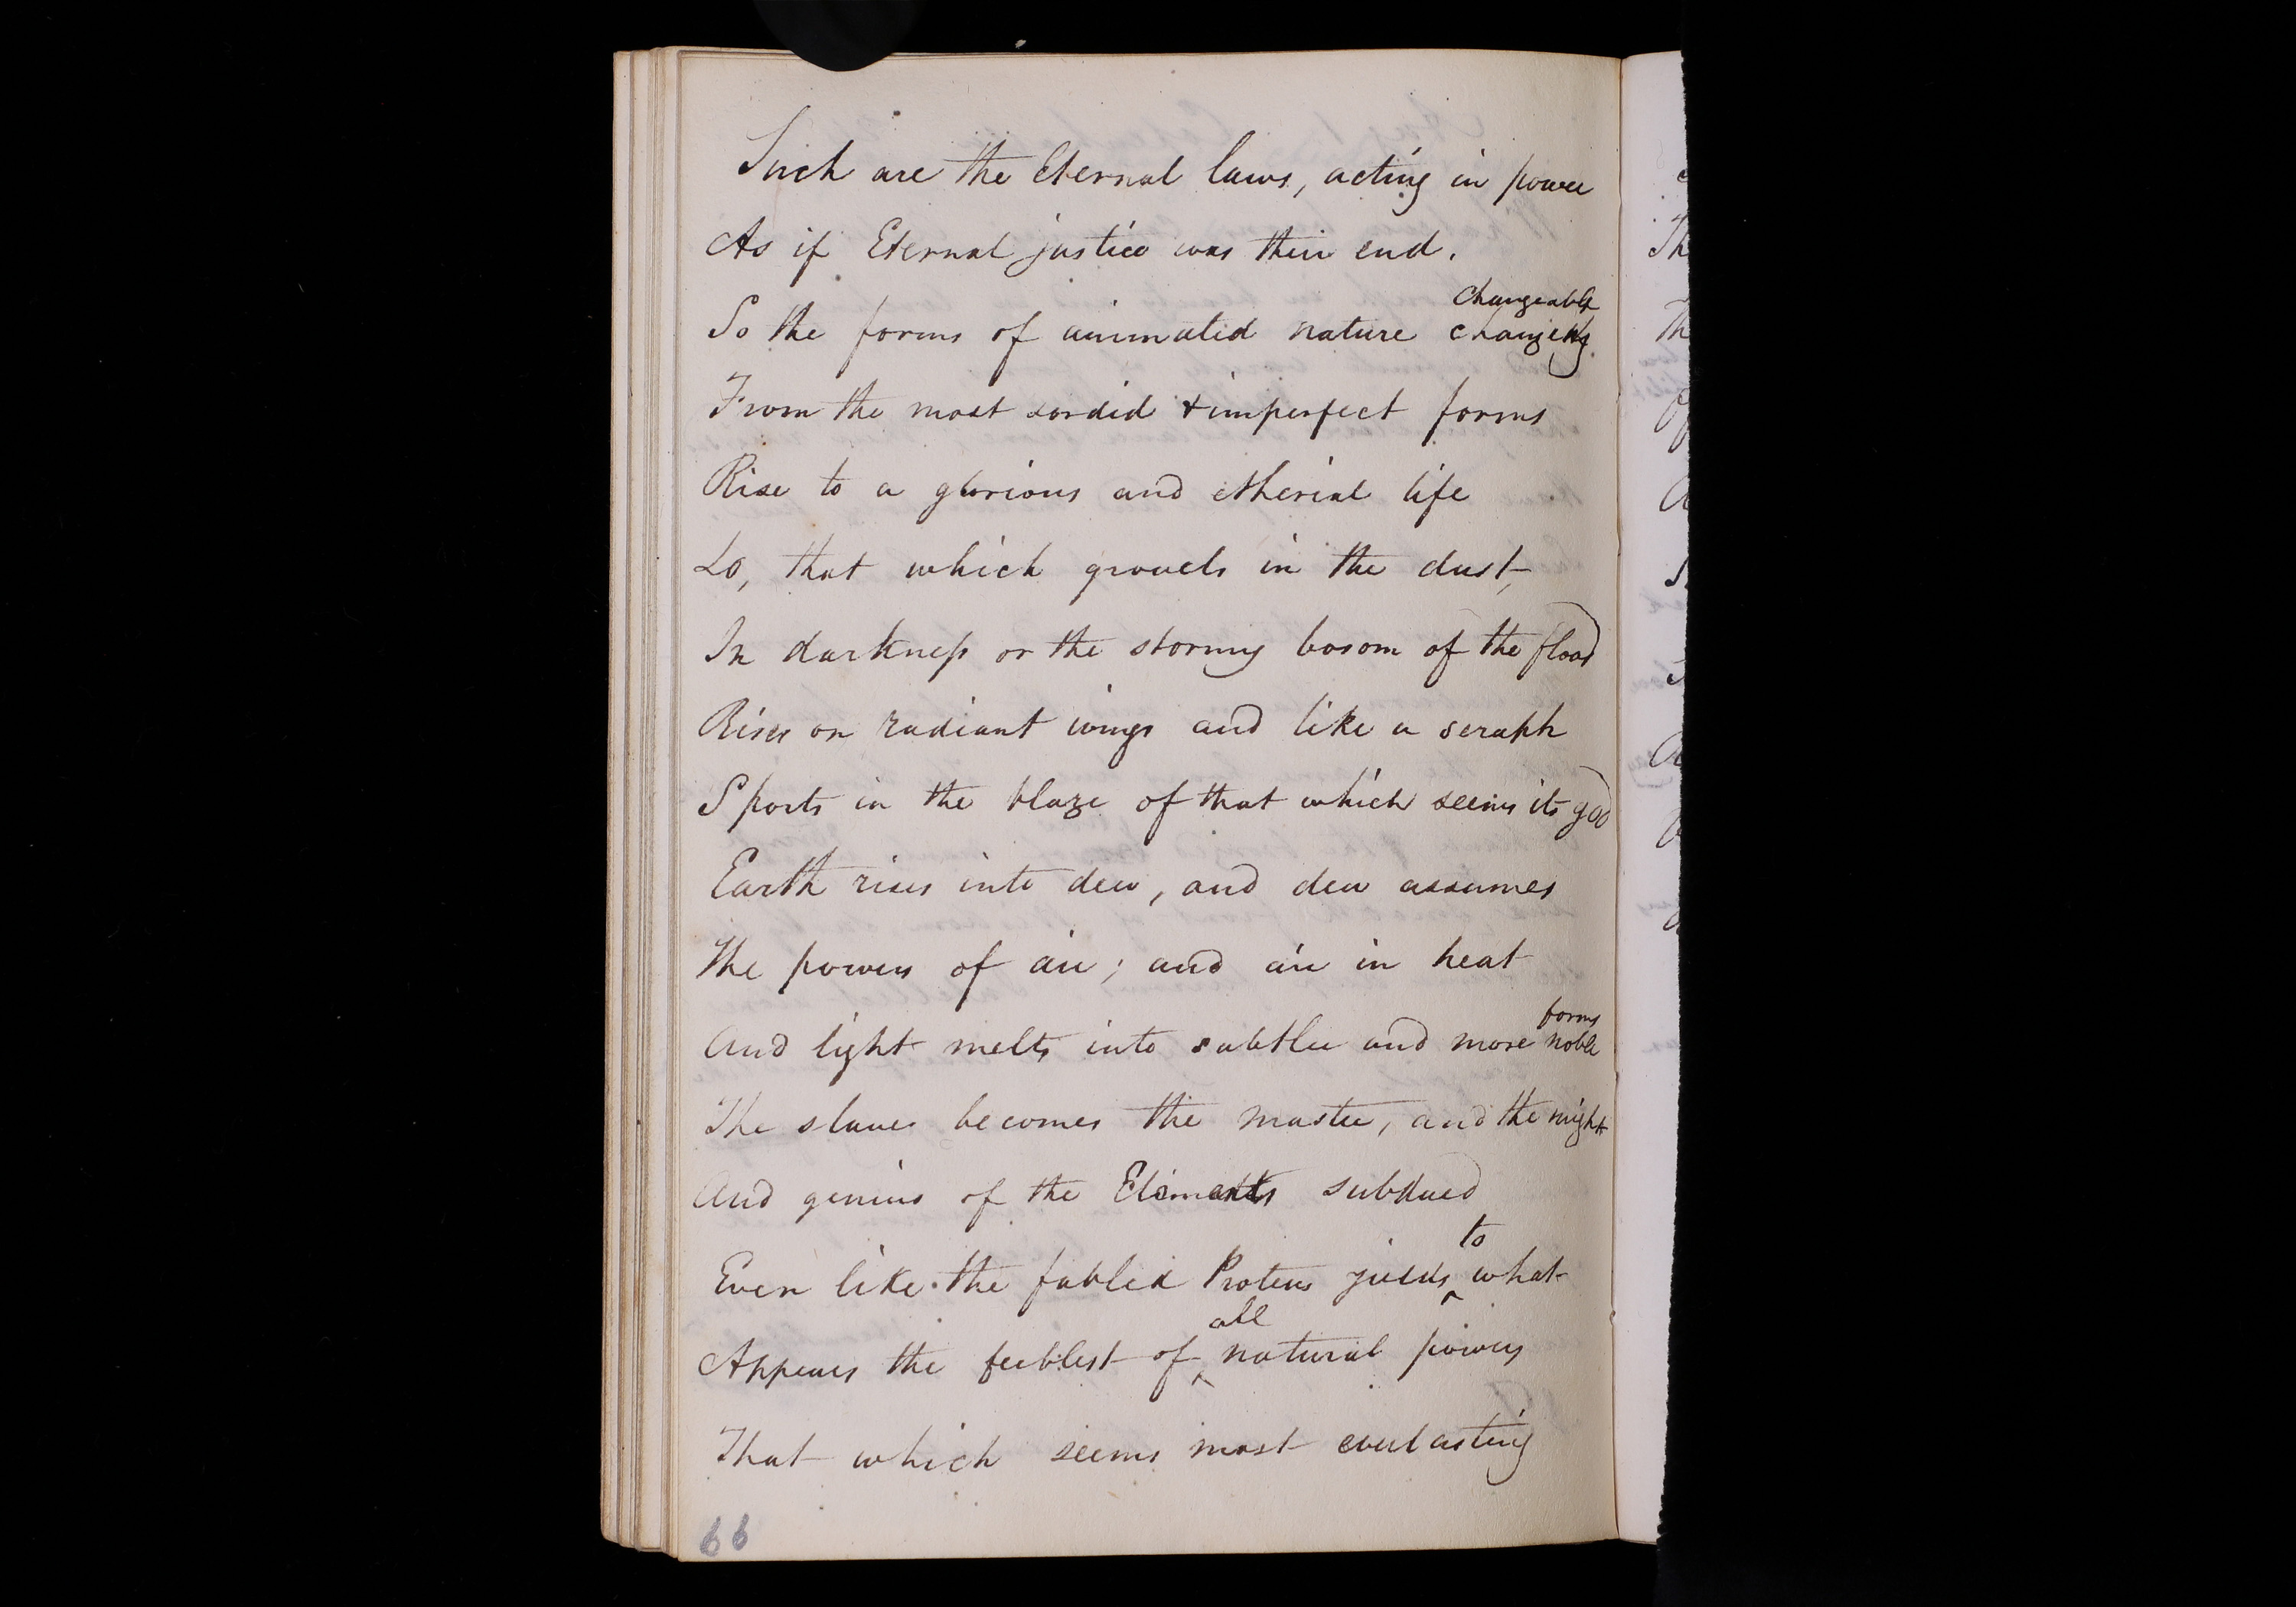 Such are the Eternal laws, acting in power
As if Eternal justice was their end.
changeable
So the forms of animated nature changeing
From the most sordid & imperfect forms
Rise to a glorious and etherial life
Lo, that which grovels in the dust,
In darkness or the stormy bosom of the flood
Rises on radiant wings and like a seraph
Sports in the blaze of that which seems its god
Earth rises into dew, and dew assumes
The powers of air; and air in heat
forms
And light melts into subtler and more noble
The slave becomes the master, and the might
And genius of the Elements subdued
to
Even like the fabled Proteus yields ‸ what
all
Appears the feeblest of ‸ natural powers
That which seems most everlasting
66